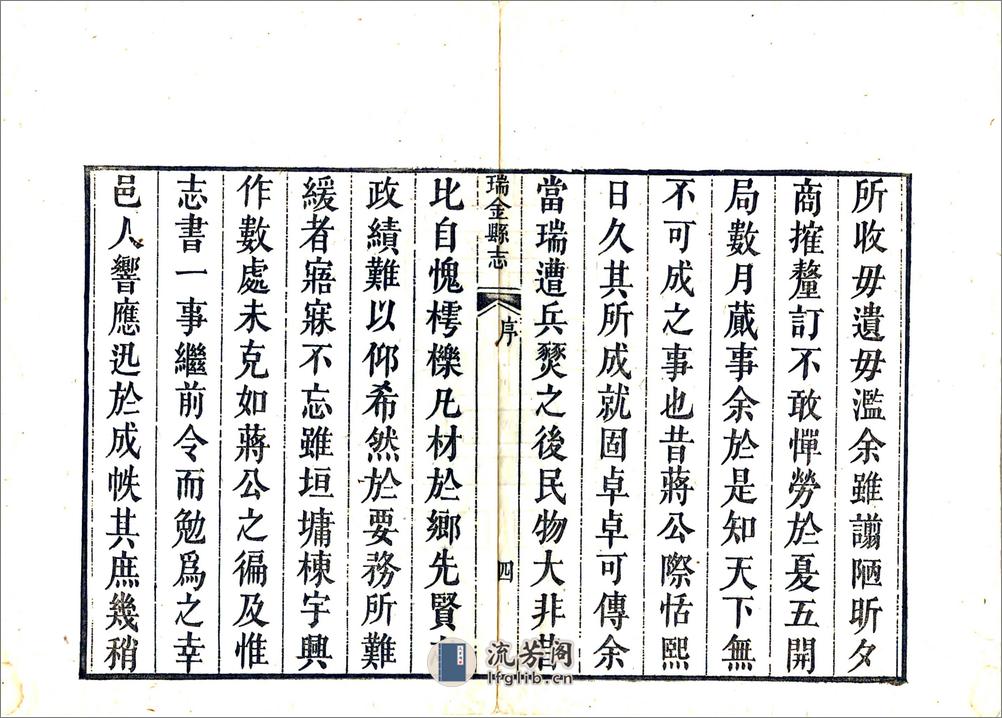 所收毋遺毋濫余雖譾陋昕夕
商摧釐訂不敢憚勞於夏五開
局數月蕆事余於是知天下無
不可成之事也昔蔣公際恬熙
日久其所成就固卓卓可傳余
當瑞遭兵燹之後民物大非昔
瑞金縣志
序
四
比自愧樗櫟凡材於鄉先賢
政績難以仰希然於要務所難
緩者寤寐不忘雖垣墉棟宇興
作數處未克如蔣公之徧及惟
志書一事繼前令而勉爲之幸
邑人響應迅於成帙其庶幾稍
流芳阁
lfglib.cn